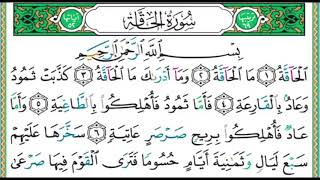 سُورَةُ الْحَاقَّةِ
بِسْمِ اللَّهِ الرَّحْمَٰنِ الرَّحِيمِ
الْحَاقَّةُ ١ مَا الْحَاقَّةُ ٢ وَمَا أَدْرَىٰكَ مَا الْحَاقَّةُ ٣ كَذَّبَتْ ثَمُودُ
وَعَادٌ بِالْقَارِعَةِ ٤ فَأَمَّا ثَمُودُ فَأُهْلِكُوا بِالطَّاغِيَةِ ٥ وَأَمَّا
عَادٌ فَأُهْلِكُوا بِرِيحٍ صَرْصَرٍ عَاتِيَةٍ ٦ سَخَّرَهَا عَلَيْهِمْ
سَبْعَ لَيَالٍ وَثَمَٰنِيَةَ أَيَّامٍ حُسُومًا فَتَرَى الْقَوْمَ فِيهَا صَرْعَىٰ